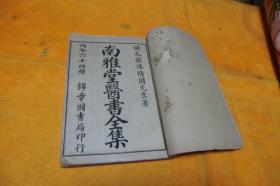 閩長樂陳修園先生著
南雅堂醫書全集
內分六十四種 錦章圖書局印行